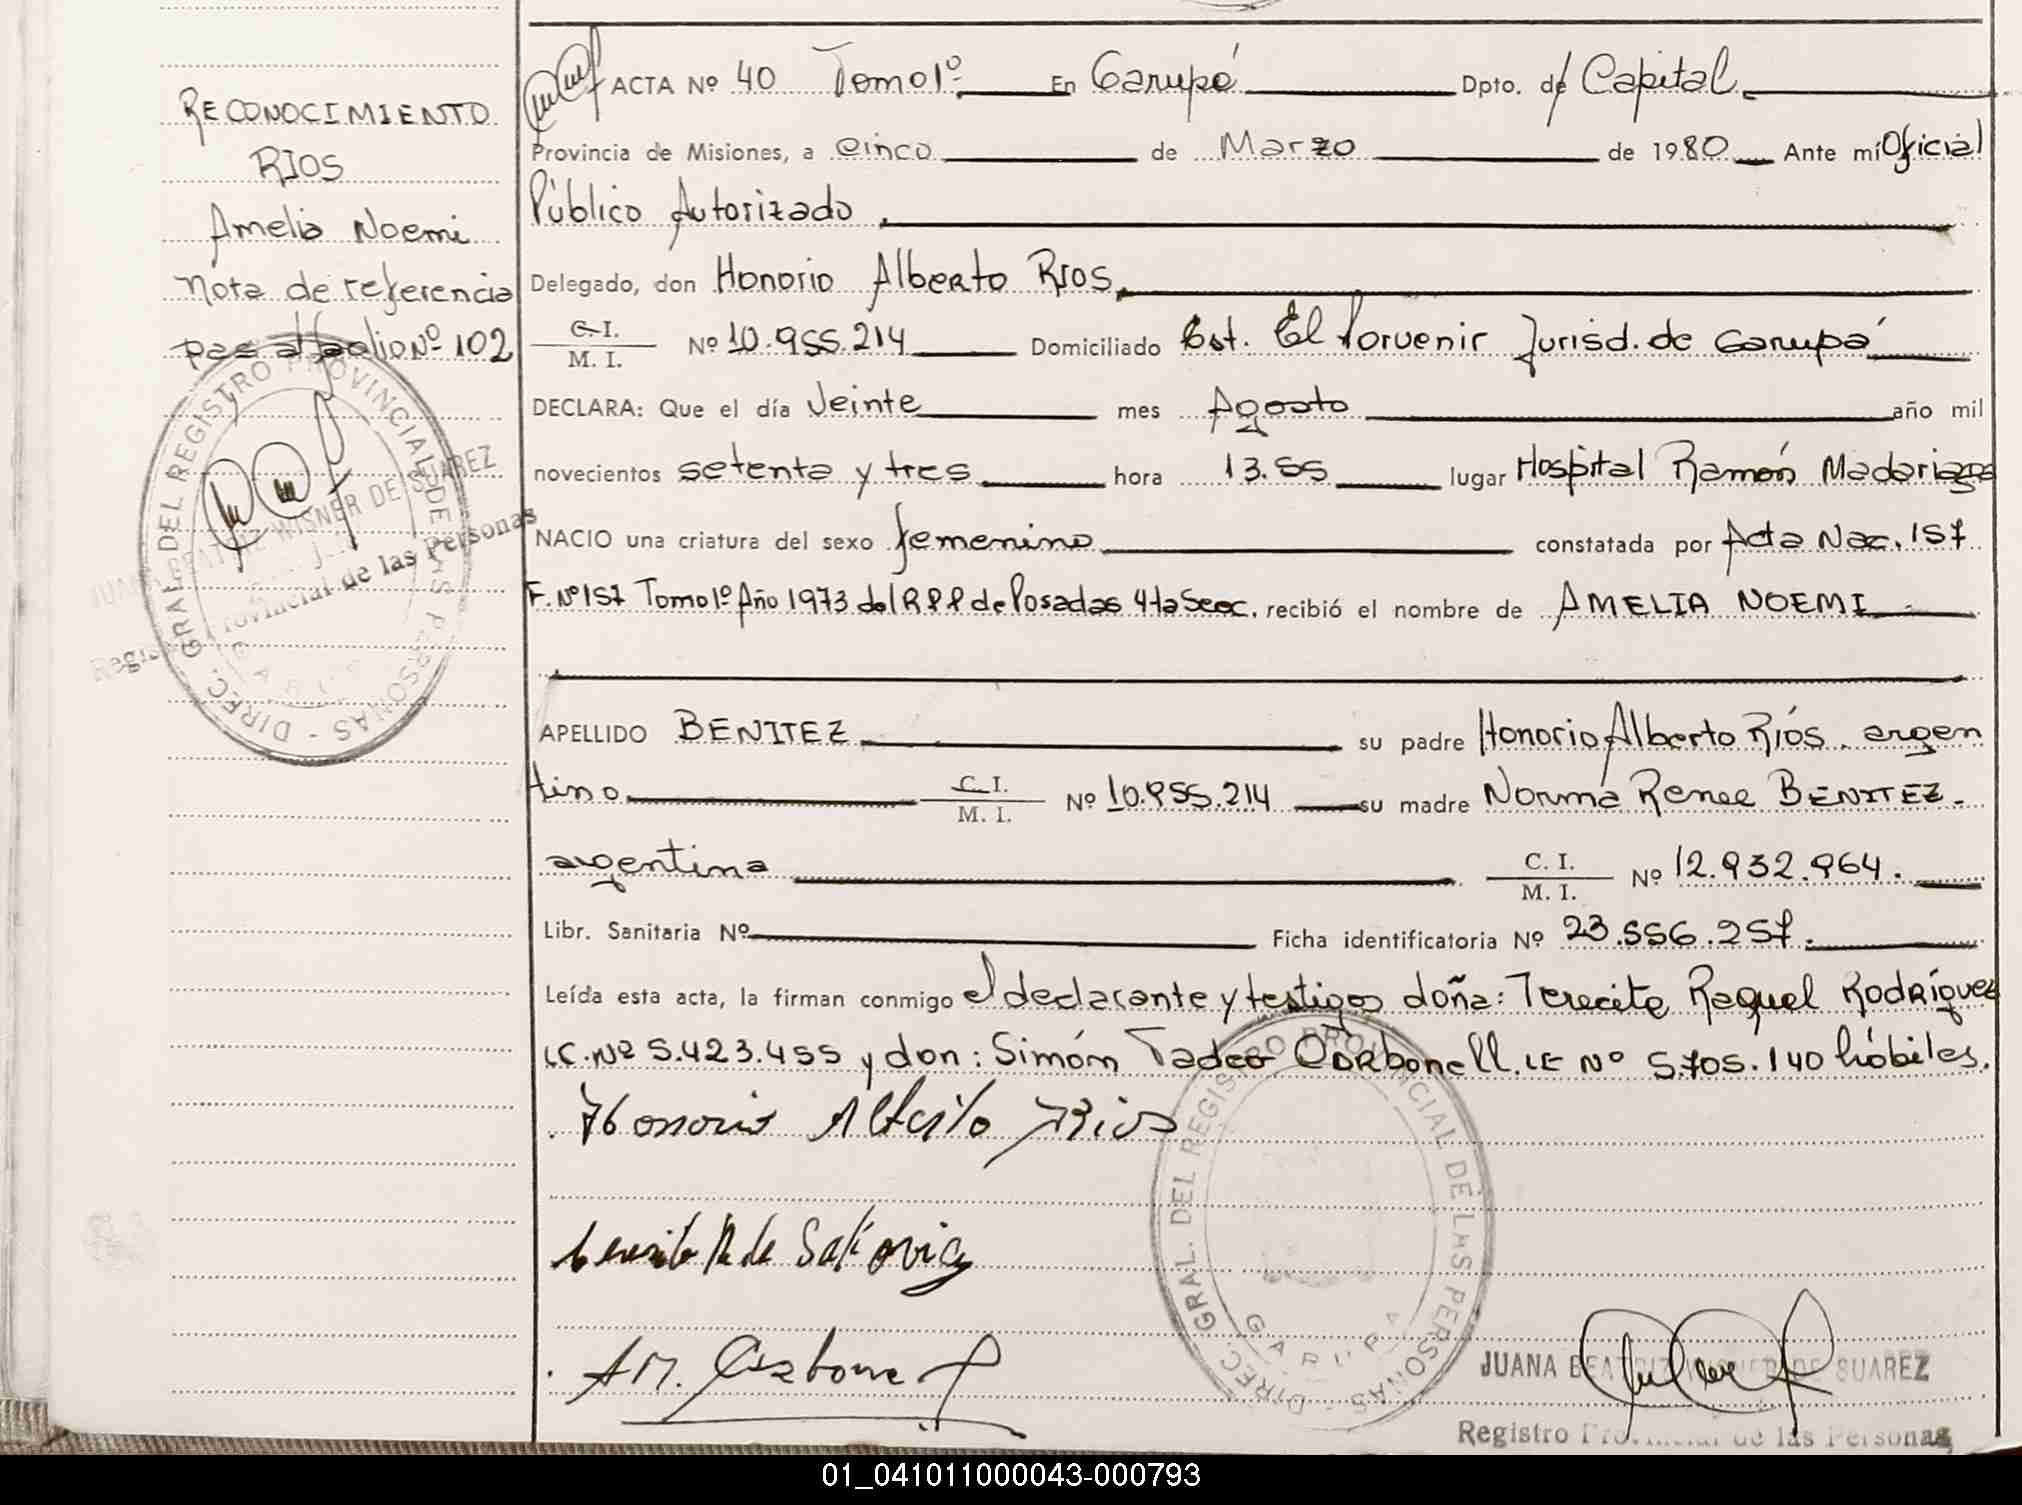 RECONOCIMIENTO
RIOS
Amelia Noemi
Nota de referencia
pas al folio Nº 102
DIREC. GRAL. DEL REGISTRO PROVINCIAL DE LAS PERSONAS
GARUPA
JUANA BEATRIZ WISNER DE SUAREZ
Registro Provincial de las Personas
ACTA Nº 40 Tomo 1º En Garupá Dpto. de Capital
Provincia de Misiones, a cinco de Marzo de 1980 Ante mí Oficial
Público Autorizado
Delegado, don Honorio Alberto RIOS
C.I. / M. I. Nº 10.955.214 Domiciliado Est. El Porvenir Jurisd. de Garupá
DECLARA: Que el día Veinte mes Agosto año mil
novecientos setenta y tres hora 13.55 lugar Hospital Ramón Madariaga
NACIO una criatura del sexo femenino constatada por Acta Nac. 157
F. Nº 157 Tomo 1º Año 1973 del R.P.P de Posadas 4ta Secc. recibió el nombre de AMELIA NOEMI
APELLIDO BENITEZ su padre Honorio Alberto Ríos. argen
tino C. I. / M. I. Nº 10.955.214 su madre Norma Renee BENITEZ.
argentina C. I. / M. I. Nº 12.932.964.
Libr. Sanitaria Nº Ficha identificatoria Nº 23.556.257.
Leída esta acta, la firman conmigo el declarante y testigos doña: Terecita Raquel Rodríguez
LC. Nº 5.423.455 y don: Simón Tadeo Carbonell. LE Nº 5.705.140 hábiles.
Honorio Alberto Rios
DIREC. GRAL. DEL REGISTRO PROVINCIAL DE LAS PERSONAS
GARUPA
JUANA BEATRIZ WISNER DE SUAREZ
Registro Provincial de las Personas
01_041011000043-000793